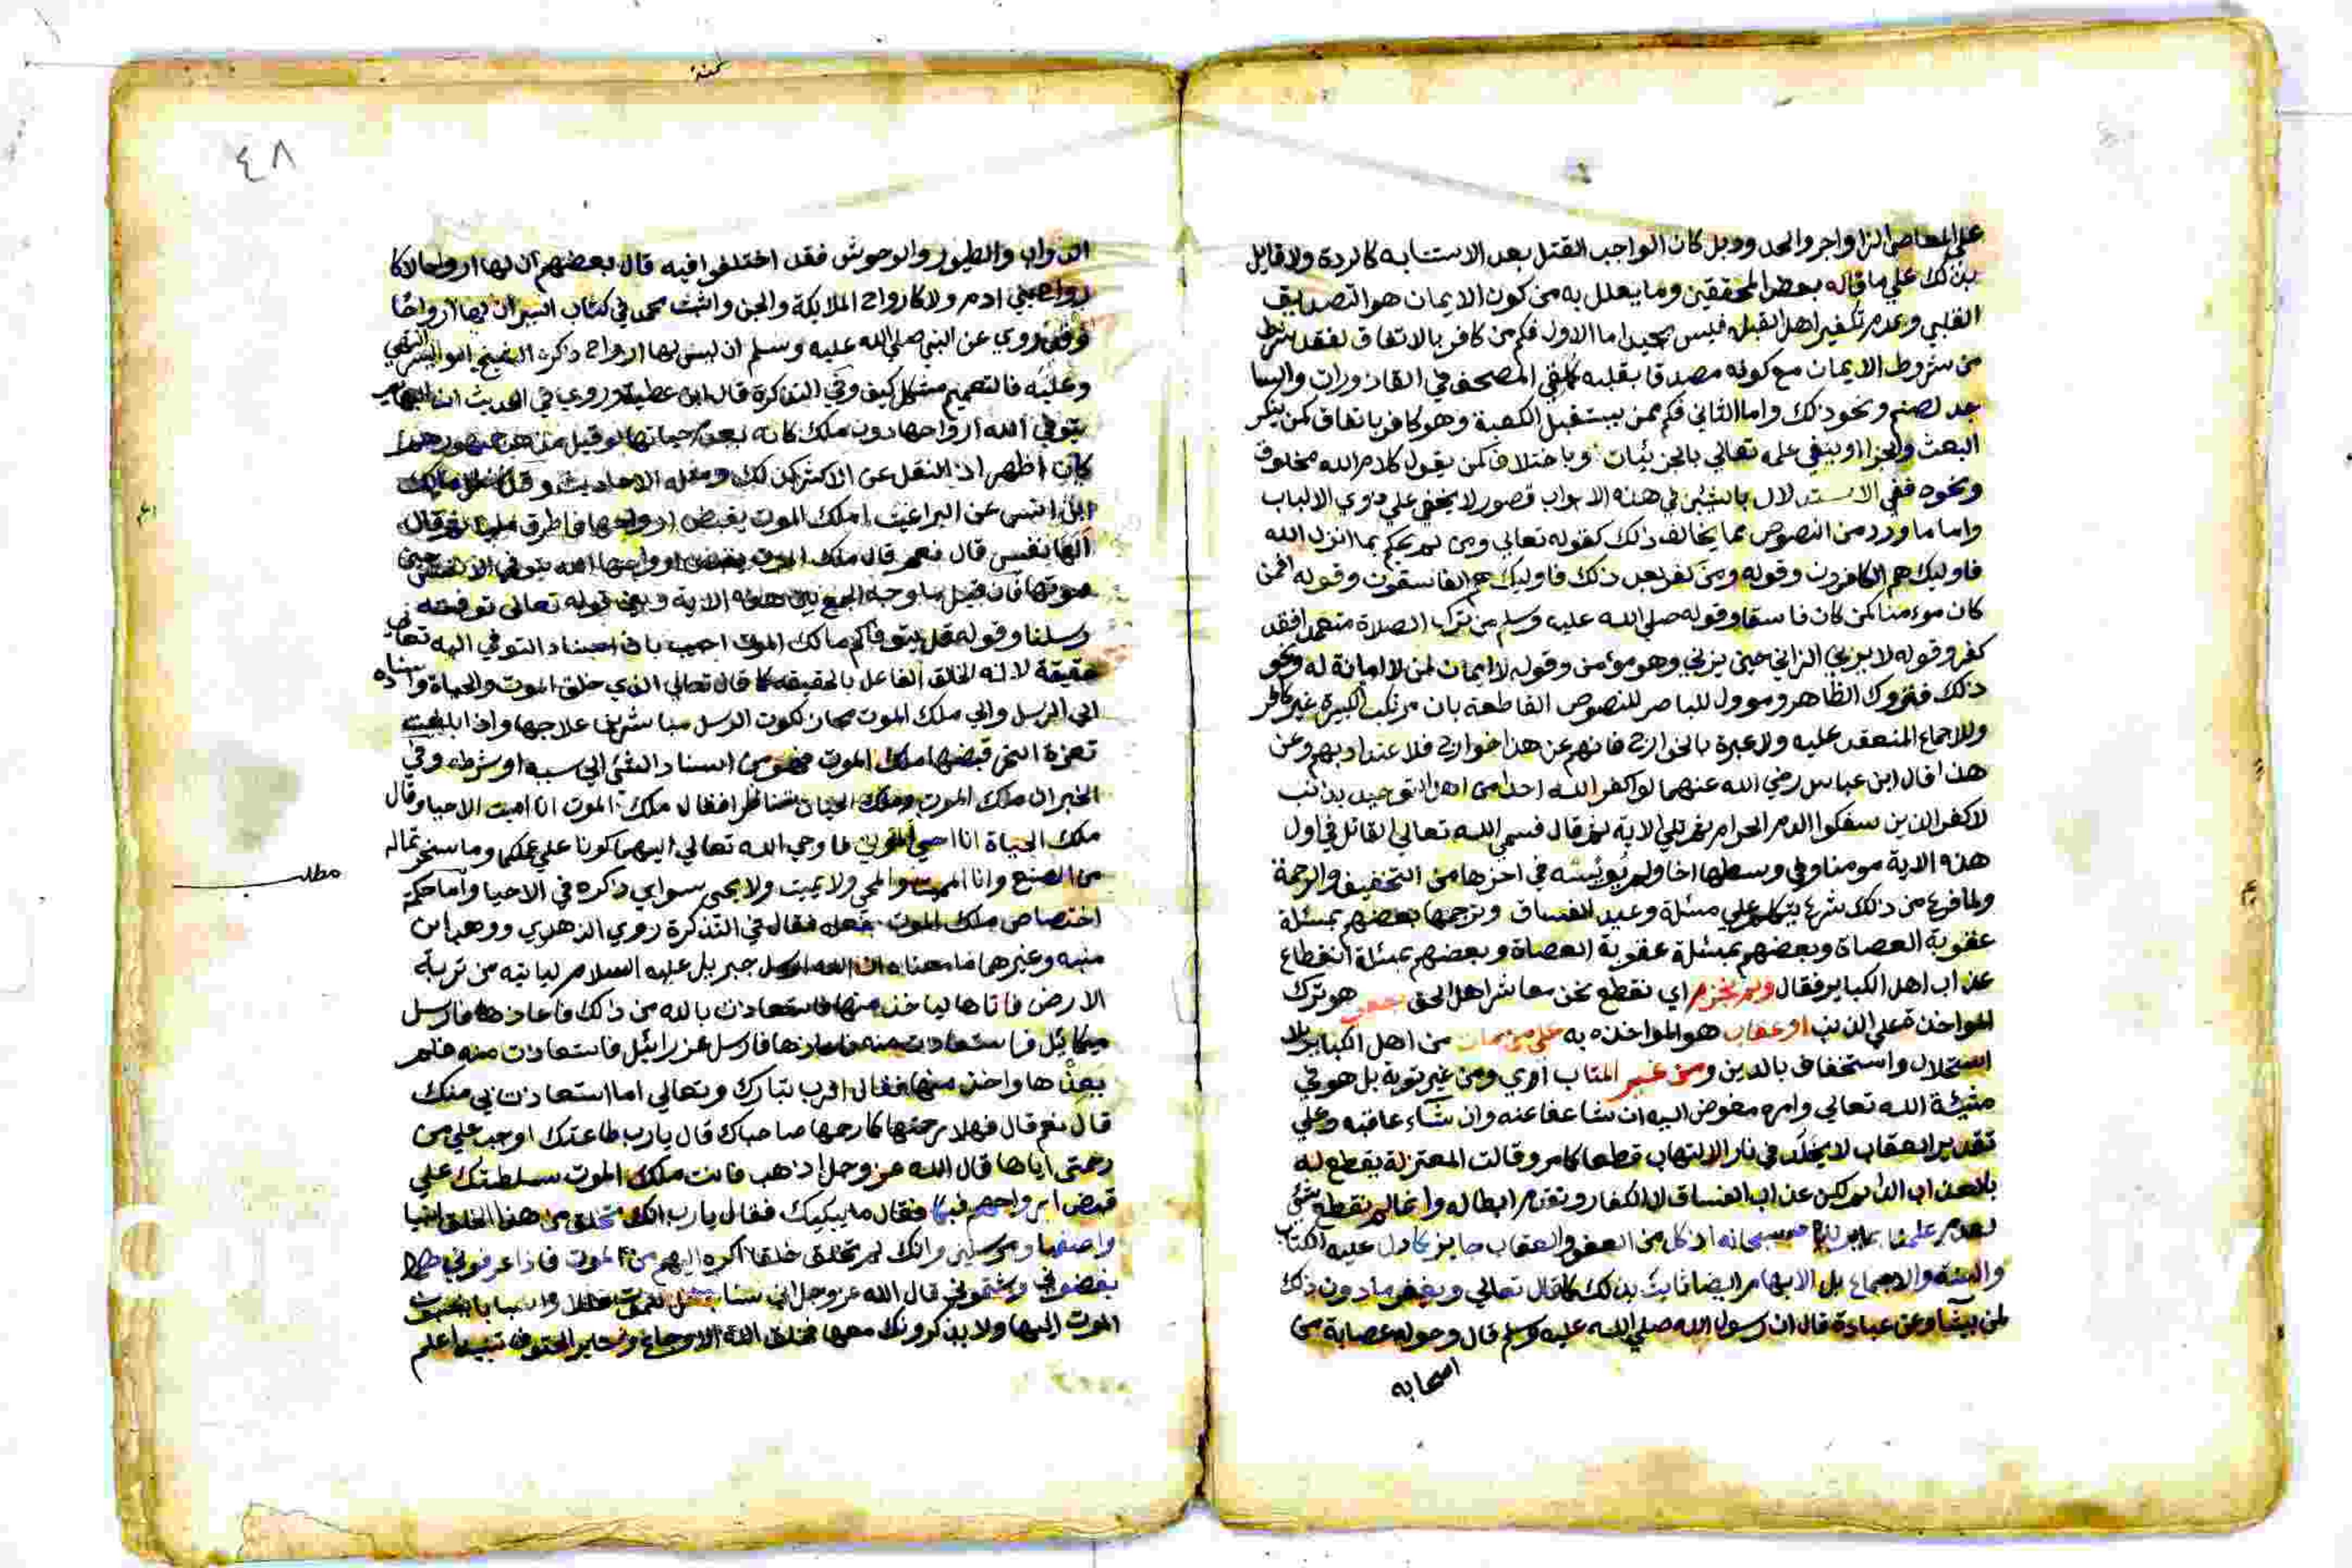 علي المعاصي الزواجر والحدود بل كان الواجب القتل بعد الاستتابه كالردة ولا قايل
بذلك علي ما قاله بعض المحققين وما يعلل به من كون الايمان هو التصديق
القلبي وعدم تكفير اهل القبله فليس بجيد اما الاول فكم من كافر بالاتفاق لفقد شرط
من شروط الايمان مع كونه مصدقا بقلبه كملقي المصحف في القاذورات والسا
جد لصنم ونحو ذلك واما الثاني فكم ممن يستقبل الكعبة وهو كافر باتفاق كمن ينكر
البعث والجزا او ينفي علمه تعالي بالجزئيات وباختلاف كمن يقول كلام الله مخلوق
ونحوه ففي الاستدلال بالشيئين في هذه الابواب قصور لا يخفي علي ذوي الالباب
واما ما ورد من النصوص بما يخالف ذلك كقوله تعالي ومن لم يحكم بما انزل الله
فاوليك هم الكافرون وقوله ومن كفر بعد ذلك فاوليك هم الفاسقون وقوله افمن
كان مومنا كمن كان فاسقا وقوله صلي الله عليه وسلم من ترك الصلاة متعمدا فقد
كفر وقوله لا يزني الزاني حين يزني وهو مؤمن وقوله لا ايمان لمن لا امانة له ونحو
ذلك فمتروك الظاهر وموول للنصوص القاطعة بان مرتكب الكبيرة غير كافر
وللاجماع المنعقد عليه ولا عبرة بالخوارج فانهم عن هذا خوارج فلا عنداد بهم وعن
هذا قال ابن عباس رضي الله عنهما لو اكفر الله احدا من اهل التوحيد بذنب
لاكفر الذين سفكوا الدم الحرام ثم تلي الاية ثم قال فسمي الله تعالي القاتل في اول
هذه الاية مومنا وفي وسطها اخا ولم يويسه في اخرها من التخفيف والرحمة
ولما فرغ من ذلك شرع يتكلم علي مسئلة وعيد الفساق وترجمها بعضهم بمسئلة
عقوبة العصاة وبعضهم بمسئلة عقوبة العصاة وبعضهم بمسئلة انقطاع
عذاب اهل الكباير فقال ولم نجزم اي نقطع نحن معاشر اهل الحق بعفو هو ترك
المواخذة علي الذنب او عقاب هو المواخذة به علي من مات من اهل الكباير بلا
استحلال واستخفاف بالدين ومن غير المتاب اي ومن غير توبة بل هو في
مشيئة الله تعالي وامره مفوض اليه ان شا عفا عنه وان شاء عاقبه وعلي
تقدير العقاب لا يخلد في نار الالتهاب قطعا كما مر وقالت المعتزلة يقطع له
بالعذاب الدايم لكن عذاب الفساق لا الكفار وتقدم ابطاله وانما لم نقطع بشي
لعدم علمنا سبحانه اذ كل من العفو والعقاب جايز كما دل عليه الكتاب
والسنة والاجماع بل الابهام ايضا ثابت بذلك كما قال تعالي ويغفر ما دون ذلك
لمن يشا وعن عبادة قال ان رسول الله صلي الله عليه وسلم قال وحوله عصابة من
اصحابه
٤٨
الدواب والطيور والوحوش فقد اختلفوا فيه قال بعضهم ان لها ارواحا لا كا
رواح بني ادم ولا كارواح الملايكة والجن واثبت محمد في كتاب السير ان لها ارواحا
وقد روي عن النبي صلي الله عليه وسلم ان ليس لها ارواح ذكره الشيخ ابو اليسر
وعليه فالتعميم مشكل كيف وفي التذكرة قال ابن عطية وروي في الحديث ان البهايم
يتوفي الله ارواحها دون ملك كانه يعدم حياتها
كان اظهر اذ النقل عن الاكثر كذلك ومثله الاحاديث
ابن انس عن البراغيث املك الموت يقبض ارواحها فاطرق مليا ثم قال
الها نفس قال نعم قال ملك الموت يقبض ارواحها الله يتوفي الانفس حين
موتها فان قيل ما وجه الجمع بين هذه الاية وبين قوله تعالي توفته
رسلنا وقوله قل يتوفاكم ملك الموت اجيب بان اسناد التوفي اليه تعالي
حقيقة لانه الخالق الفاعل بالحقيقه كما قال تعالي الذي خلق الموت والحياة واسناده
الي الرسل والي ملك الموت مجاز لكون الرسل مباشرين علاجها واذا بلغت
ثغرة النحر قبضها ملك الموت فهو من اسناد الشئ الي سببه او شرطه وفي
الخبر ان ملك الموت وملك الحياة تناظرا فقال ملك الموت انا اميت الاحيا وقال
ملك الحياة انا احي الموتي فاوحي الله تعالي اليهما كونا علي عملكما وما سخرتما له
مطلب
من الصنع وانا المميت والمحي ولا يميت ولا يحي سواي ذكره في الاحيا واما حكمة
اختصاص ملك الموت فقال في التذكرة روي الزهري ووهب ابن
منبه وغيرهما ما معناه ان الله ارسل جبريل عليه السلام لياتيه من تربة
الارض فاتاها لياخذ منها فاستعاذت بالله من ذلك فاعاذها فارسل
ميكائيل فاستعاذت منه فاعاذها فارسل عزرائيل فاستعاذت منه فلم
يعذها واخذ منها فقال الرب تبارك وتعالي اما استعاذت بي منك
قال نعم قال فهلا رحمتها كما رحمها صاحباك قال يارب طاعتك اوجب علي من
رحمتي اياها قال الله عز وجل اذهب فانت ملك الموت سلطتك علي
قبض ارواحهم فبكا فقال ما يبكيك فقال يارب انك تخلق من هذا الخلق انبيا
واصفيا ومرسلين وانك لم تخلق خلقا اكره اليهم من الموت فاذا عرفوني
بغضوني وشتموني قال الله عز وجل اني
الموت اليها ولا يذكرونك معها فخلق الله الاوجاع وساير الحتوف تنبيه اعلم